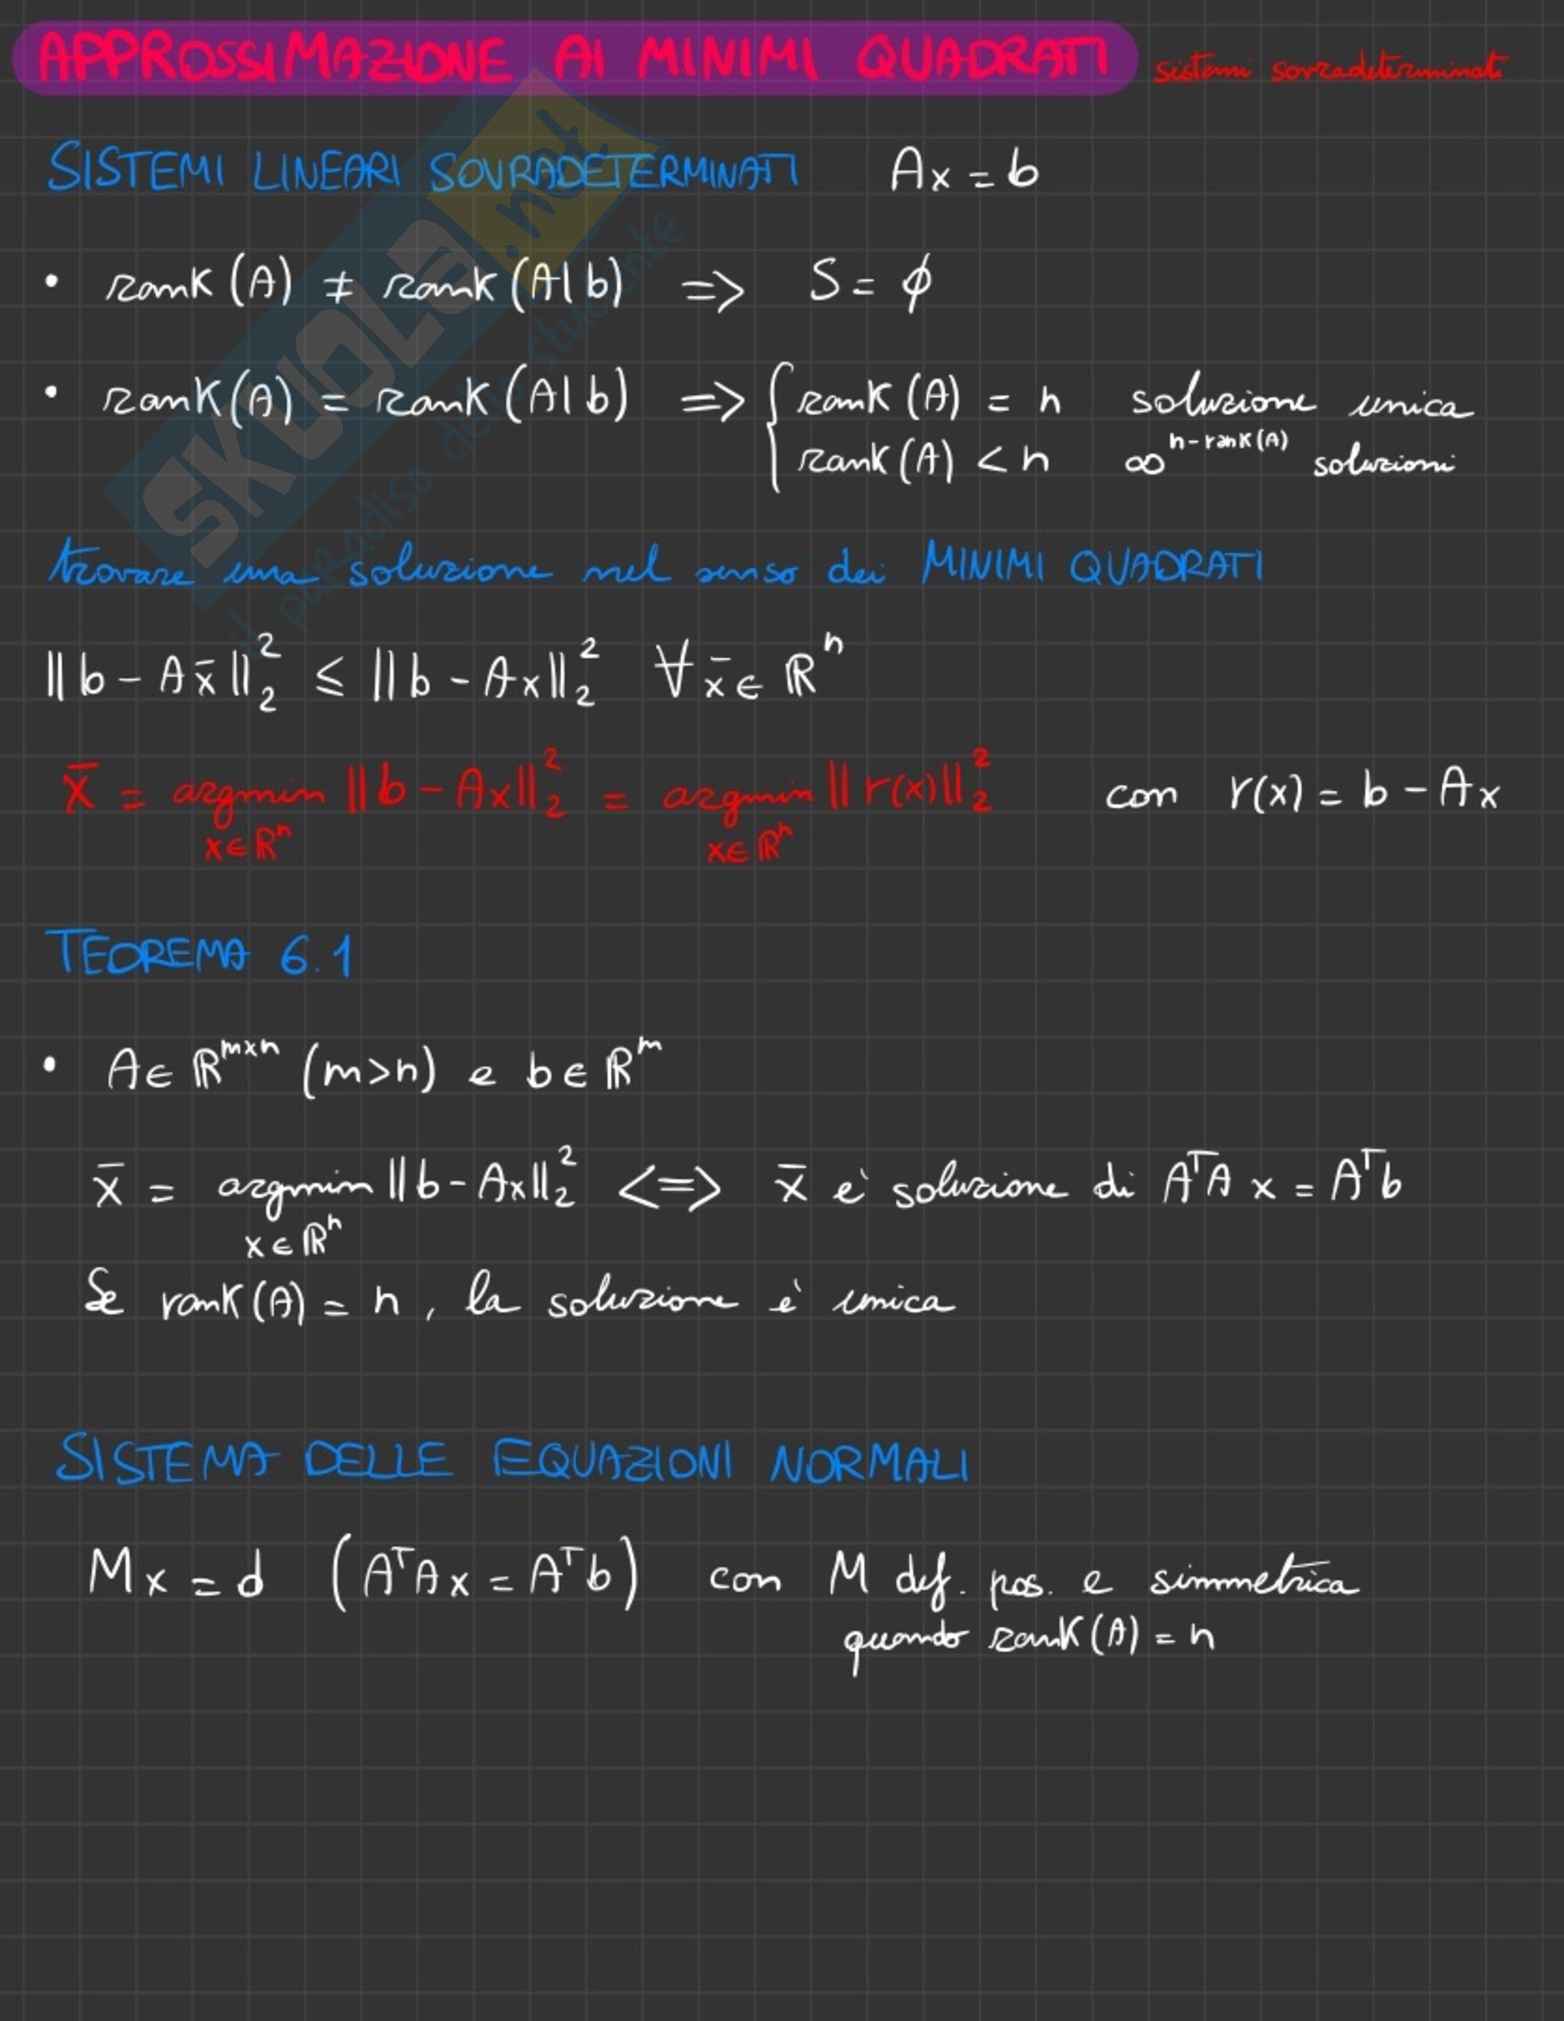 APPROSSIMAZIONE AI MINIMI QUADRATI sistemi sovradeterminati
SISTEMI LINEARI SOVRADETERMINATI Ax = b
• rank (A) ≠ rank (A|b) => S = ϕ
• rank(A) = rank (A|b) => { rank (A) = n soluzione unica
rank (A) < n ∞^{n-rank(A)} soluzioni
trovare una soluzione nel senso dei MINIMI QUADRATI
||b - Ax̄||₂² ≤ ||b - Ax||₂² ∀ x̄ ∈ ℝⁿ
x̄ = argmin ||b - Ax||₂² = argmin || r(x)||₂² con r(x) = b - Ax
x∈ℝⁿ x∈ℝⁿ
TEOREMA 6.1
• A∈ ℝ^{m×n} (m>n) e b∈ℝ^m
x̄ = argmin ||b - Ax||₂² <=> x̄ e' soluzione di AᵀA x = Aᵀb
x∈ℝⁿ
Se rank(A) = n, la soluzione e' unica
SISTEMA DELLE EQUAZIONI NORMALI
Mx = d (AᵀAx = Aᵀb) con M def. pos. e simmetrica
quando rank(A) = n
SKUOLA.net
il paradiso dello studente